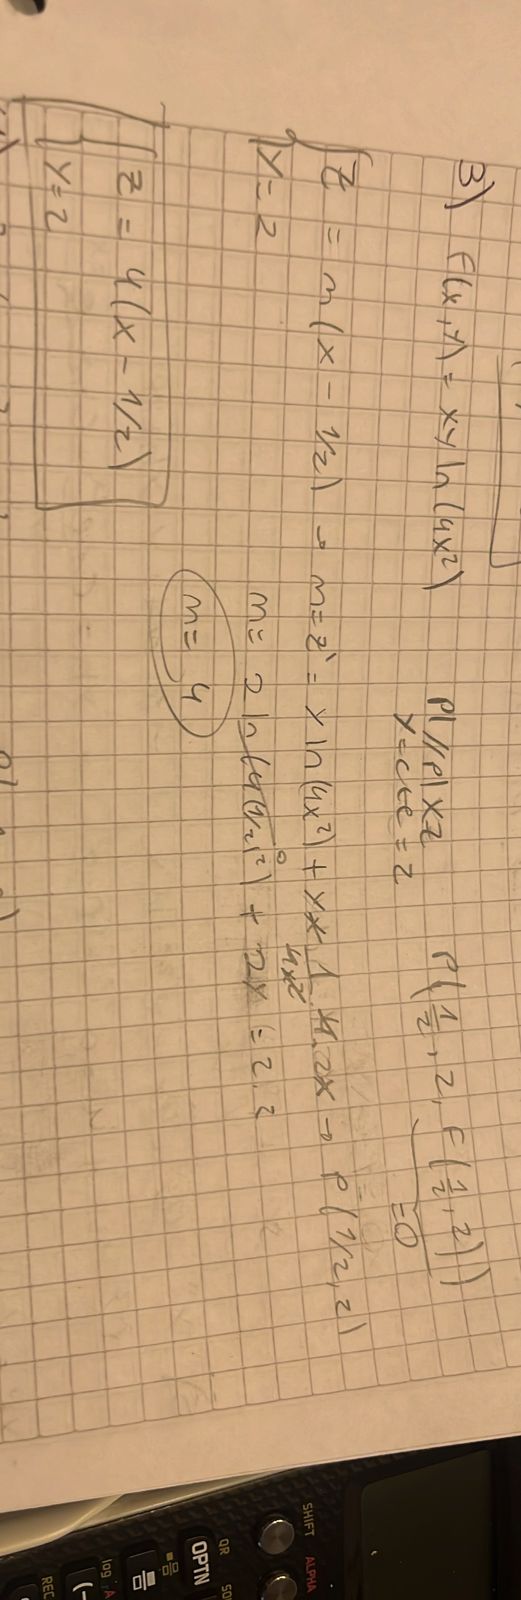 3) F(x,y) = xy ln(4x²) Pl // pl xz P(1/2, 2, F(1/2, 2))
y=cte = 2 =0
{ z = m(x - 1/2) → m=z' = y ln(4x²) + yx 1/4x² 4.2x → P(1/2,2)
y= 2 m= 2 ln(4(1/2)²) 0 + 2y = 2.2
m= 4
{ z = 4(x - 1/2)
y=2
SHIFT ALPHA
QR
OPTN
log
(-
REC